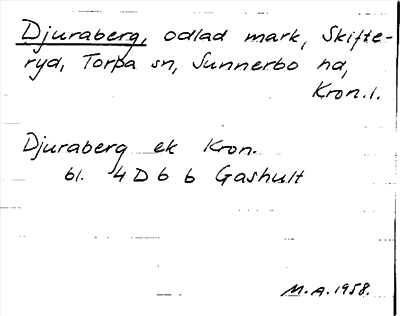 Djuraberg, odlad mark, Skifte-
ryd, Torpa sn, Sunnerbo hd,
Kron.l.
Djuraberg ek Kron.
bl. 4 D 6 b Gashult
M.A. 1958.